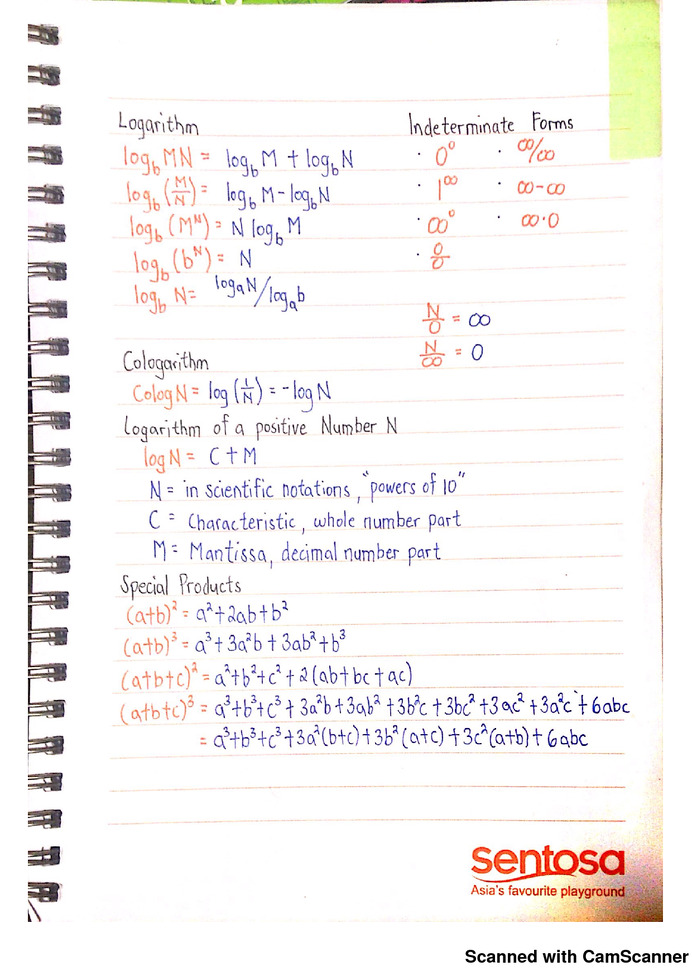 Logarithm
log_b MN = log_b M + log_b N
log_b (M/N) = log_b M - log_b N
log_b (M^N) = N log_b M
log_b (b^N) = N
log_b N = log_a N / log_a b
Indeterminate Forms
· 0^0 · ∞/∞
· 1^∞ · ∞-∞
· ∞^0 · ∞·0
· 0/0
N/0 = ∞
N/∞ = 0
Cologarithm
Colog N = log (1/N) = -log N
Logarithm of a positive Number N
log N = C + M
N = in scientific notations, "powers of 10"
C = Characteristic, whole number part
M = Mantissa, decimal number part
Special Products
(a+b)² = a²+2ab+b²
(a+b)³ = a³+3a²b+3ab²+b³
(a+b+c)² = a²+b²+c²+2(ab+bc+ac)
(a+b+c)³ = a³+b³+c³+3a²b+3ab²+3b²c+3bc²+3ac²+3a²c+6abc
= a³+b³+c³+3a²(b+c)+3b²(a+c)+3c²(a+b)+6abc
sentosa
Asia's favourite playground
Scanned with CamScanner